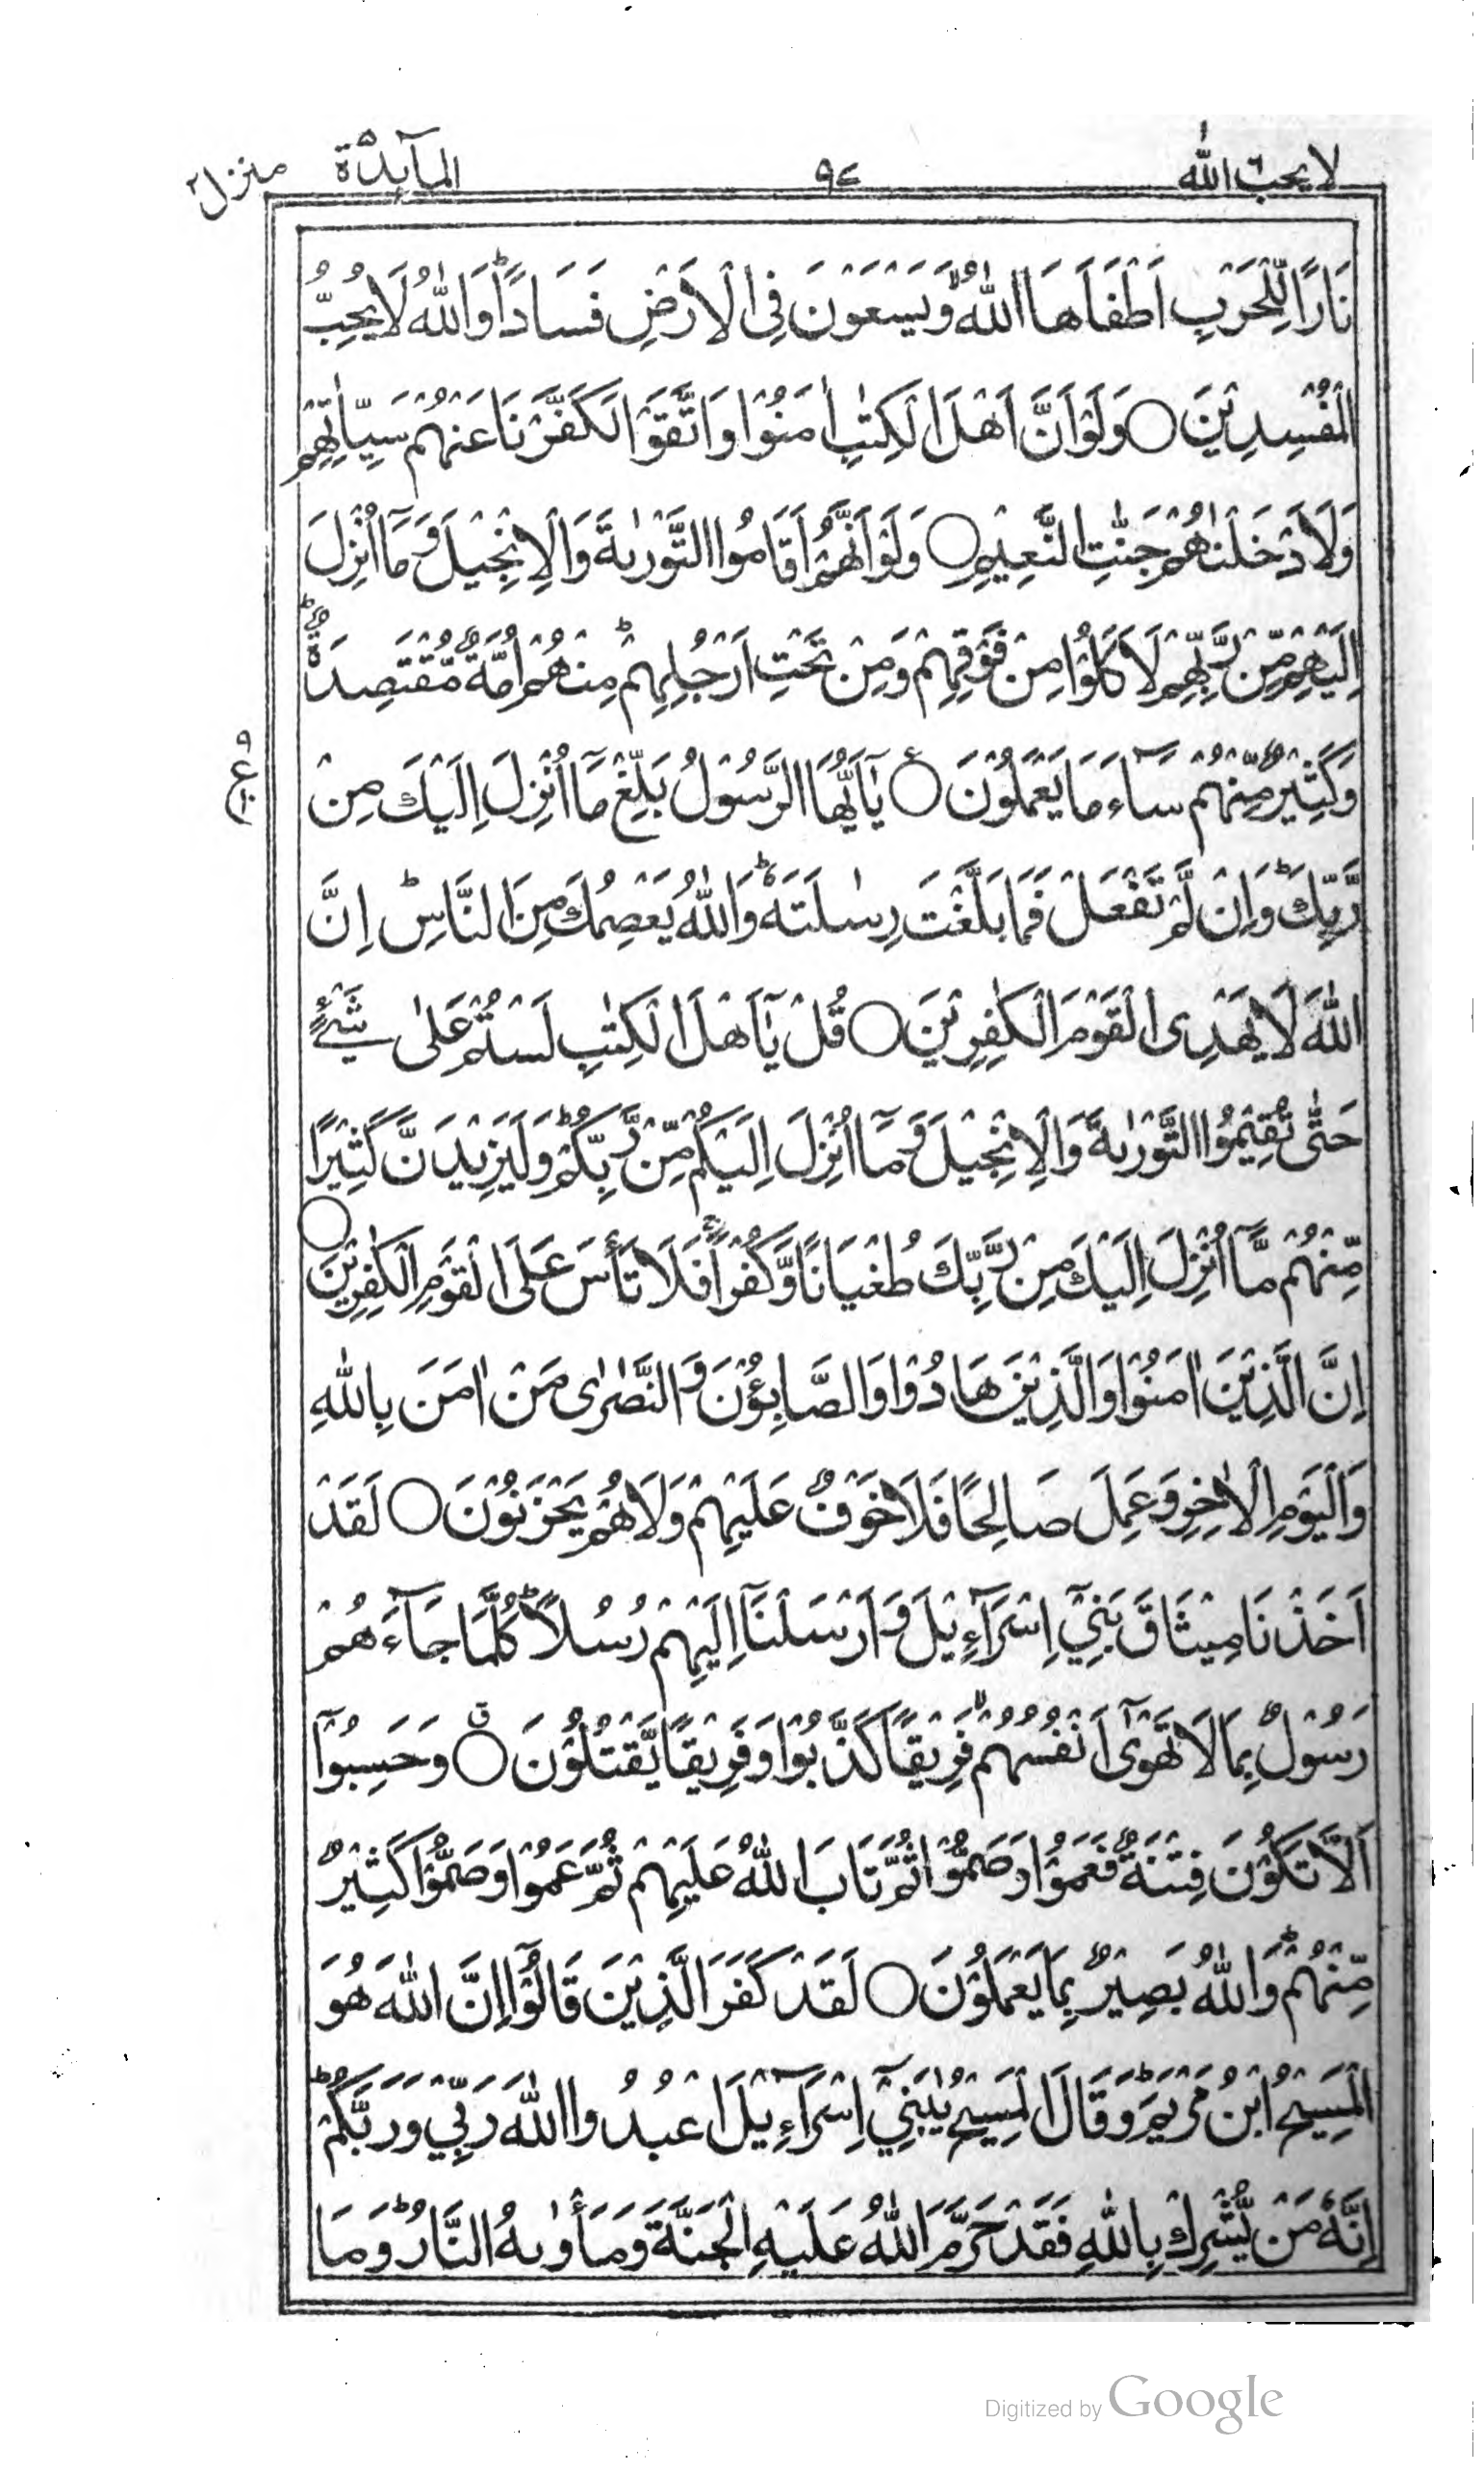 لا يحب الله ٦
٩٧
المآئدة ٥
منزل ٢
نَارًا لِّلْحَرْبِ اَطْفَاَهَا اللّٰهُ ۙ وَيَسْعَوْنَ فِى الْاَرْضِ فَسَادًا ؕ وَاللّٰهُ لَا يُحِبُّ
الْمُفْسِدِيْنَ ○ وَلَوْ اَنَّ اَهْلَ الْكِتٰبِ اٰمَنُوْا وَاتَّقَوْا لَكَفَّرْنَا عَنْهُمْ سَيِّاٰتِهِمْ
وَلَاَدْخَلْنٰهُمْ جَنّٰتِ النَّعِيْمِ ○ وَلَوْ اَنَّهُمْ اَقَامُوا التَّوْرٰىةَ وَالْاِنْجِيْلَ وَمَآ اُنْزِلَ
اِلَيْهِمْ مِّنْ رَّبِّهِمْ لَاَكَلُوْا مِنْ فَوْقِهِمْ وَمِنْ تَحْتِ اَرْجُلِهِمْ ؕ مِنْهُمْ اُمَّةٌ مُّقْتَصِدَةٌ ؕ
وَكَثِيْرٌ مِّنْهُمْ سَآءَ مَا يَعْمَلُوْنَ ○ ع يٰۤاَيُّهَا الرَّسُوْلُ بَلِّغْ مَآ اُنْزِلَ اِلَيْكَ مِنْ
٩ ع ١٠
رَّبِّكَ ؕ وَاِنْ لَّمْ تَفْعَلْ فَمَا بَلَّغْتَ رِسٰلَتَهٗ ؕ وَاللّٰهُ يَعْصِمُكَ مِنَ النَّاسِ ؕ اِنَّ
اللّٰهَ لَا يَهْدِى الْقَوْمَ الْكٰفِرِيْنَ ○ قُلْ يٰۤاَهْلَ الْكِتٰبِ لَسْتُمْ عَلٰى شَيْءٍ
حَتّٰى تُقِيْمُوا التَّوْرٰىةَ وَالْاِنْجِيْلَ وَمَآ اُنْزِلَ اِلَيْكُمْ مِّنْ رَّبِّكُمْ ؕ وَلَيَزِيْدَنَّ كَثِيْرًا
مِّنْهُمْ مَّآ اُنْزِلَ اِلَيْكَ مِنْ رَّبِّكَ طُغْيَانًا وَّكُفْرًا ۚ فَلَا تَاْسَ عَلَى الْقَوْمِ الْكٰفِرِيْنَ ○
اِنَّ الَّذِيْنَ اٰمَنُوْا وَالَّذِيْنَ هَادُوْا وَالصَّابِئُوْنَ وَالنَّصٰرٰى مَنْ اٰمَنَ بِاللّٰهِ
وَالْيَوْمِ الْاٰخِرِ وَعَمِلَ صَالِحًا فَلَا خَوْفٌ عَلَيْهِمْ وَلَا هُمْ يَحْزَنُوْنَ ○ لَقَدْ
اَخَذْنَا مِيْثَاقَ بَنِيْۤ اِسْرَآءِيْلَ وَاَرْسَلْنَآ اِلَيْهِمْ رُسُلًا ؕ كُلَّمَا جَآءَهُمْ
رَسُوْلٌ بِمَا لَا تَهْوٰۤى اَنْفُسُهُمْ ۙ فَرِيْقًا كَذَّبُوْا وَفَرِيْقًا يَّقْتُلُوْنَ ○ ق وَحَسِبُوْۤا
اَلَّا تَكُوْنَ فِتْنَةٌ فَعَمُوْا وَصَمُّوْا ثُمَّ تَابَ اللّٰهُ عَلَيْهِمْ ثُمَّ عَمُوْا وَصَمُّوْا كَثِيْرٌ
مِّنْهُمْ ؕ وَاللّٰهُ بَصِيْرٌ بِمَا يَعْمَلُوْنَ ○ لَقَدْ كَفَرَ الَّذِيْنَ قَالُوْۤا اِنَّ اللّٰهَ هُوَ
الْمَسِيْحُ ابْنُ مَرْيَمَ ؕ وَقَالَ الْمَسِيْحُ يٰبَنِيْۤ اِسْرَآءِيْلَ اعْبُدُوا اللّٰهَ رَبِّيْ وَرَبَّكُمْ ؕ
اِنَّهٗ مَنْ يُّشْرِكْ بِاللّٰهِ فَقَدْ حَرَّمَ اللّٰهُ عَلَيْهِ الْجَنَّةَ وَمَاْوٰىهُ النَّارُ ؕ وَمَا
Digitized by Google